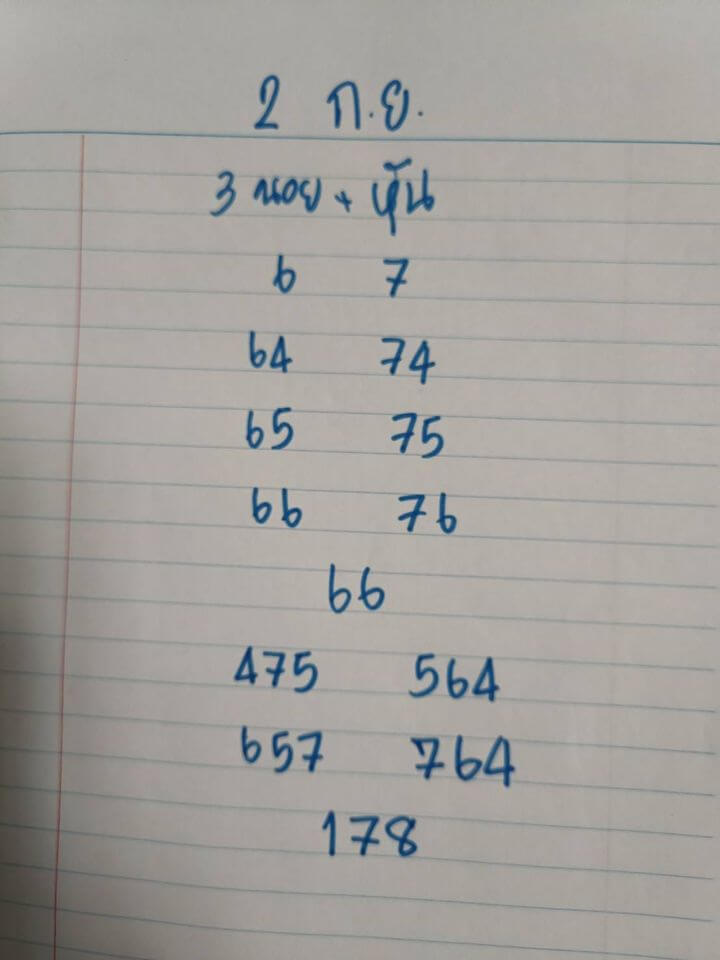 2 ก.ย.
3 นอย + หุ้น
6 7
64 74
65 75
66 76
66
475 564
657 764
178